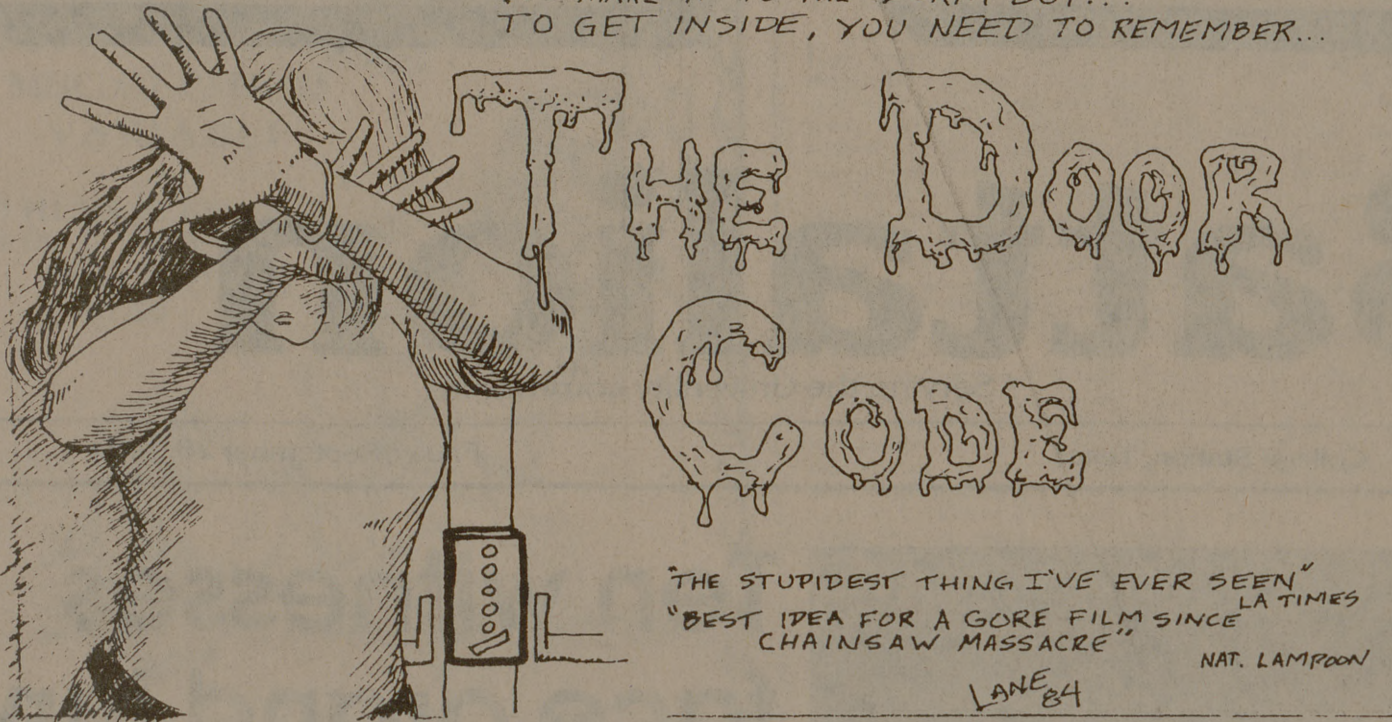 TO GET INSIDE, YOU NEED TO REMEMBER...
THE DOOR
CODE
"THE STUPIDEST THING I'VE EVER SEEN"
LA TIMES
"BEST IDEA FOR A GORE FILM SINCE
CHAINSAW MASSACRE"
NAT. LAMPOON
LANE 84